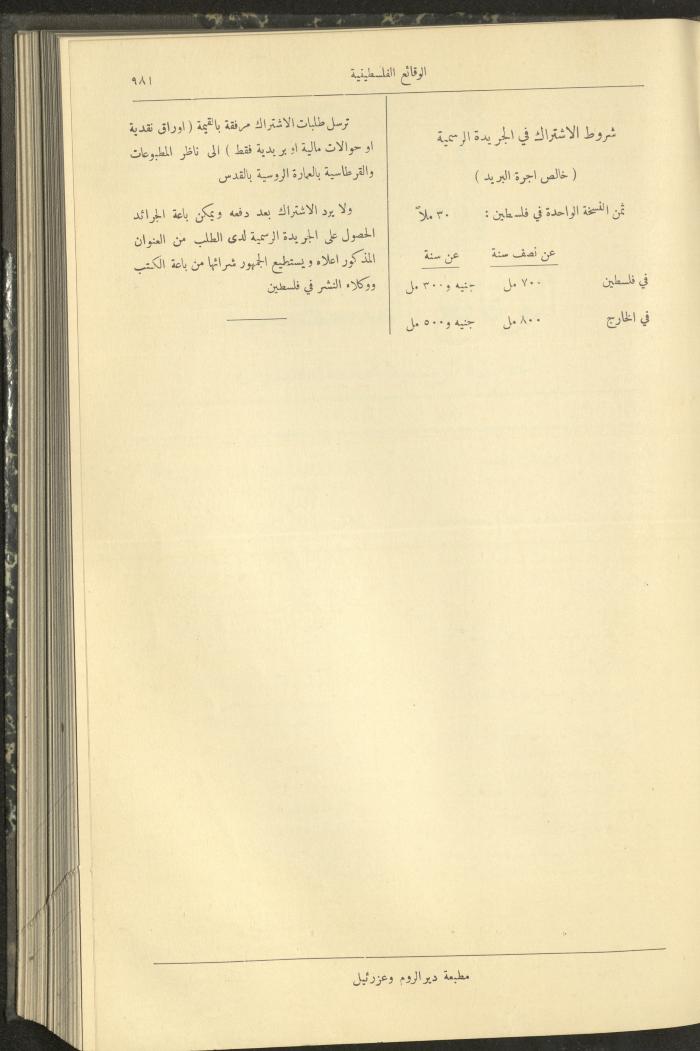 الوقائع الفلسطينية
٩٨١
شروط الاشتراك في الجريدة الرسمية
( خالص اجرة البريد )
ثمن النسخة الواحدة في فلسطين : ٣٠ ملاً
عن نصف سنة عن سنة
في فلسطين ٧٠٠ مل جنيه و٣٠٠ مل
في الخارج ٨٠٠ مل جنيه و٥٠٠ مل
ترسل طلبات الاشتراك مرفقة بالقيمة ( اوراق نقدية
او حوالات مالية او بريدية فقط ) الى ناظر المطبوعات
والقرطاسية بالعمارة الروسية بالقدس
ولا يرد الاشتراك بعد دفعه ويمكن باعة الجرائد
الحصول على الجريدة الرسمية لدى الطلب من العنوان
المذكور اعلاه ويستطيع الجمهور شرائها من باعة الكتب
ووكلاء النشر في فلسطين
مطبعة دير الروم وعزرئيل